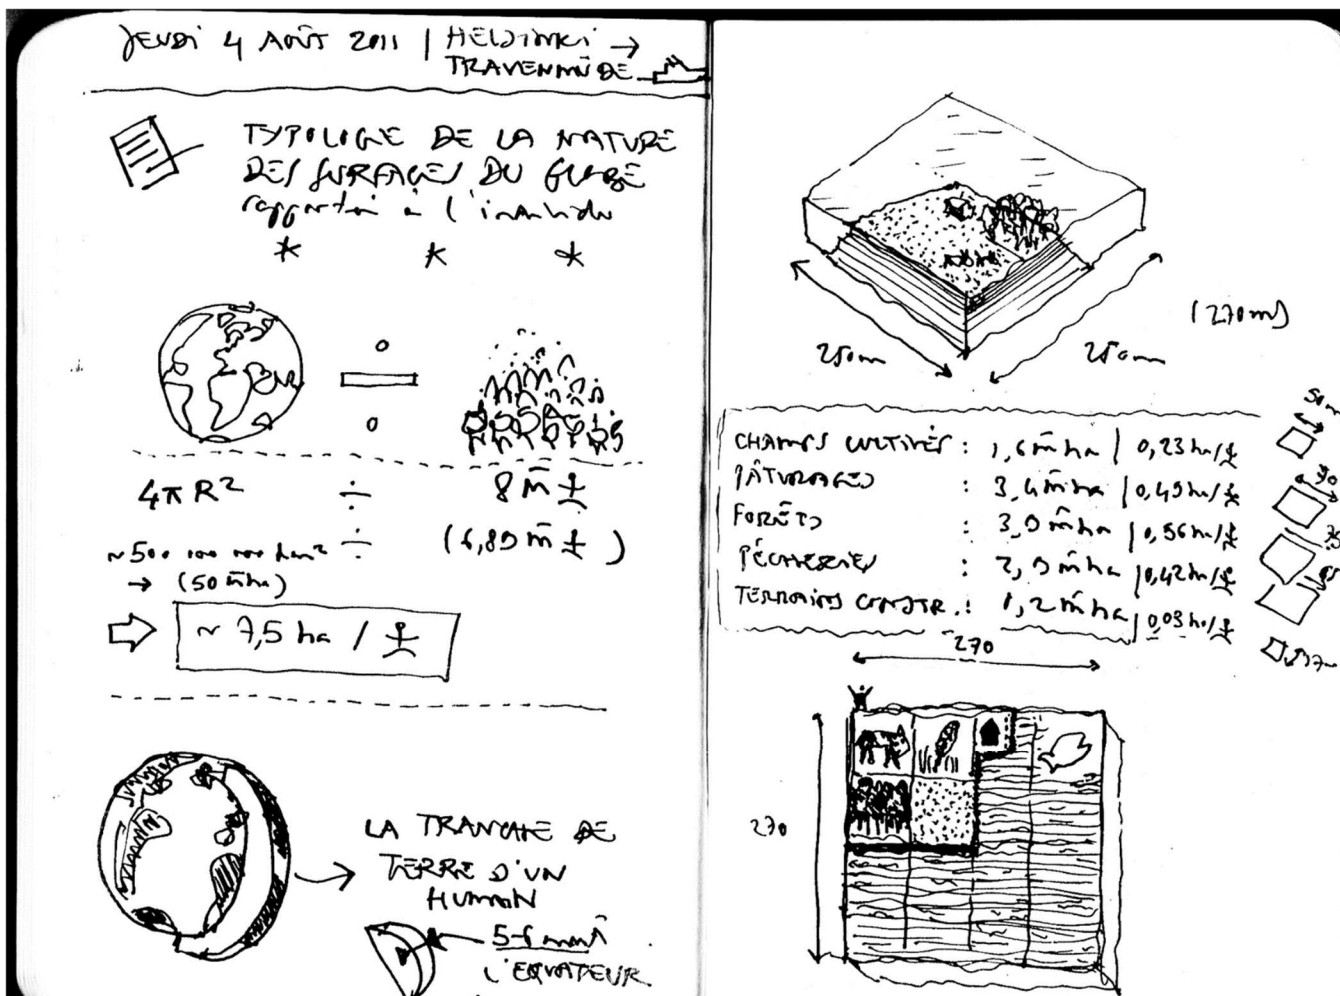 JEUDI 4 AOÛT 2011 | HELSINKI →
TRAVEMÜNDE
TYPOLOGIE DE LA NATURE
DES SURFACES DU GLOBE
à l'individu
* * *
4πR² ÷ 8 m̄
(6,89 m̄ )
~500 000 000 km²
→ (50 m̄ ha)
⇒ ~ 7,5 ha /
LA TRANCHE DE
TERRE D'UN
HUMAIN
5-6 mm À
L'EQUATEUR
(270 m)
250 m
250 m
50 m
CHAMPS CULTIVÉS : 1,6 m̄ ha | 0,23 ha/
PÂTURAGES : 3,4 m̄ ha | 0,49 ha/
70
FORÊTS : 3,9 m̄ ha | 0,56 ha/
75
PÊCHERIES : 2,9 m̄ ha | 0,42 ha/
65
TERRAINS CONSTR. : 0,2 m̄ ha | 0,03 ha/
17m
270
270